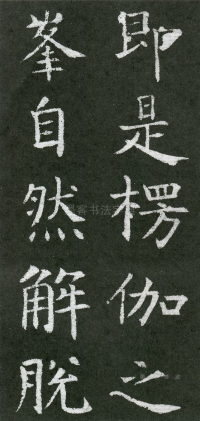 即是楞伽之
峯自然解脱